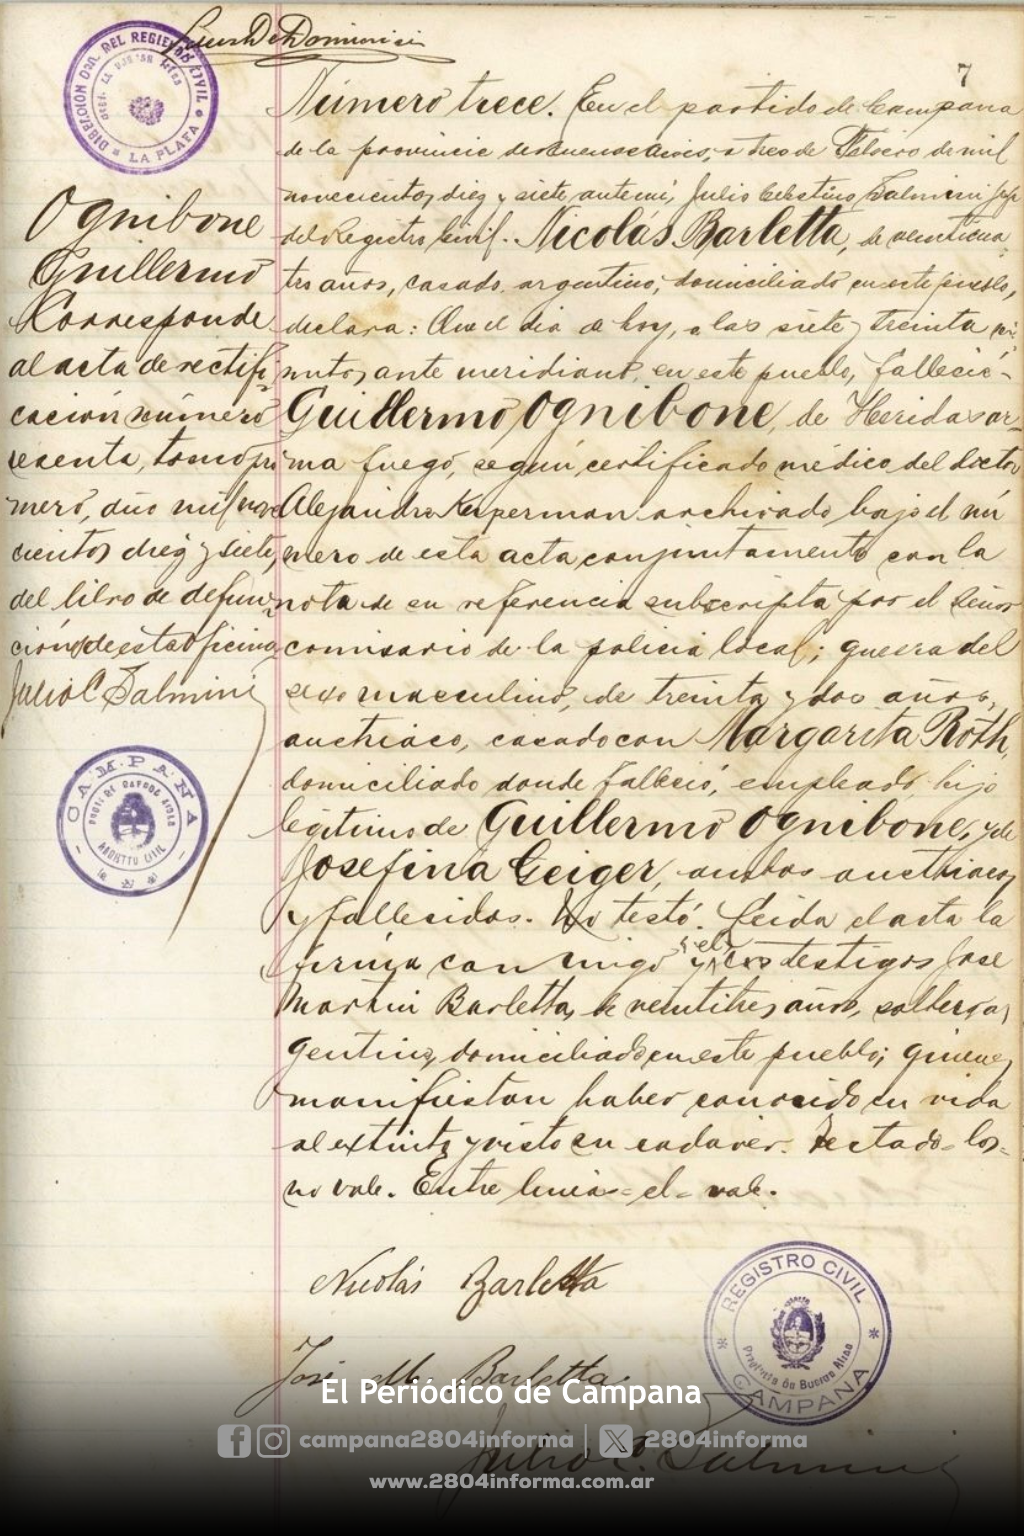 7
Número trece. En el partido de Campana
de la provincia de Buenos Aires, a trece de Febrero de mil
novecientos diez y siete, ante mí, Julio Celestino Salmini Jefe
del Registro Civil. Nicolás Barletta, de veinticua-
tro años, casado, argentino, domiciliado en este pueblo,
declara: Que el día de hoy, a las siete y treinta mi-
nutos ante meridiano, en este pueblo, falleció-
Guillermo Ognibone, de Heridas ar-
ma fuego, según certificado médico del doctor
Alejandro Kuperman archivado bajo el nú
mero de esta acta conjuntamente con la
nota de su referencia subscripta por el Señor
comisario de la policia local; que era del
sexo masculino, de treinta y dos años,
austriaco, casado con Margarita Roth,
domiciliado donde falleció, empleado, hijo
legítimo de Guillermo Ognibone, y de
Josefina Geiger, ambos austriacos,
y fallecidos. No testó. Leida el acta la
firma conmigo y el los testigos José
Martin Barletta, de veintitres años, soltero, ar
gentino, domiciliado en este pueblo; quienes
manifiestan haber conocido en vida
al extinto y visto su cadaver. Testado=los=
no vale. Entre lineas=el=vale.
Nicolás Barletta
José M. Barletta
Julio C. Salmini
Ognibone
Guillermo
Corresponde
al acta de rectifi-
cación número
sesenta, tomo pri
mero, año mil nove
cientos diez y siete,
del libro de defun-
ciones de esta oficina
Julio C. Salmini
DEL REGISTRO CIVIL
LA PLATA
CAMPANA
REGISTRO CIVIL
Provincia de Buenos Aires
CAMPANA
El Periódico de Campana
campana2804informa | 2804informa
www.2804informa.com.ar